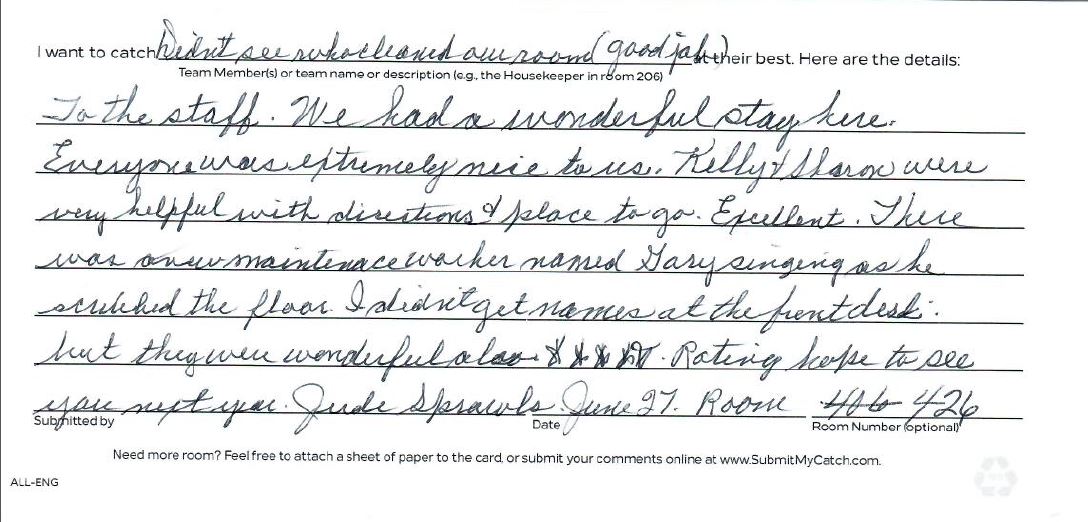 I want to catch Didn't see who cleaned our room (good job) at their best. Here are the details:
Team Member(s) or team name or description (e.g., the Housekeeper in room 206)
To the staff. We had a wonderful stay here.
Everyone was extremely nice to us. Kelly & Sharon were
very helpful with directions & place to go. Excellent. There
was maintenace worker named Gary singing as he
the floor. I didn't get names at the front desk.
but they were wonderful also. Rating hope to see
you next year. Jude Sprawls. June 27. Room 406 426
Submitted by Date Room Number (optional)
Need more room? Feel free to attach a sheet of paper to the card, or submit your comments online at www.SubmitMyCatch.com.
ALL-ENG